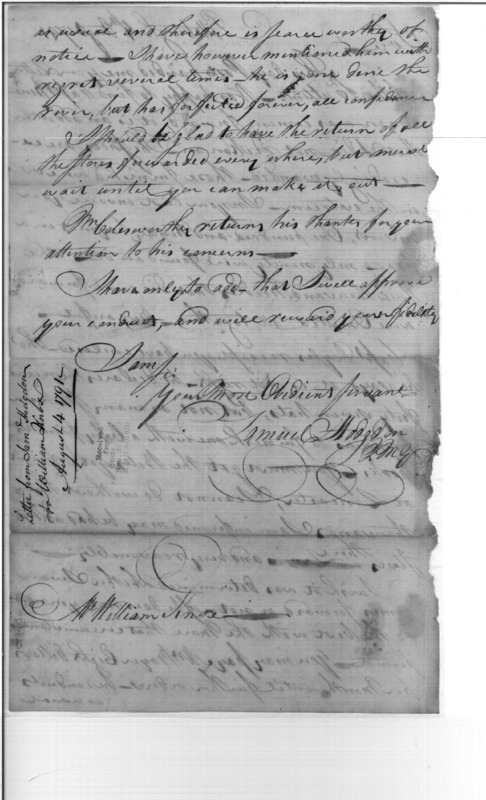 as usual and therefore is scarce worthy of
notice — I have however mentioned him with
regret several times — he is gone done the
river, but has forfeited forever, all confidence
I should be glad to have the return of all
the stores forwarded every where, but must
wait until you can make it out —
Mr Colesworthy returns his thanks for your
attention to his concerns —
I have only to add — that I well approve
your conduct, and will reward your fidelity
I am Sir
Your Most Obedient Servant
Samuel Hodgdon
QMG
Letter from Sam Hodgdon
to William Knox
August 4 1791
Mr William Knox